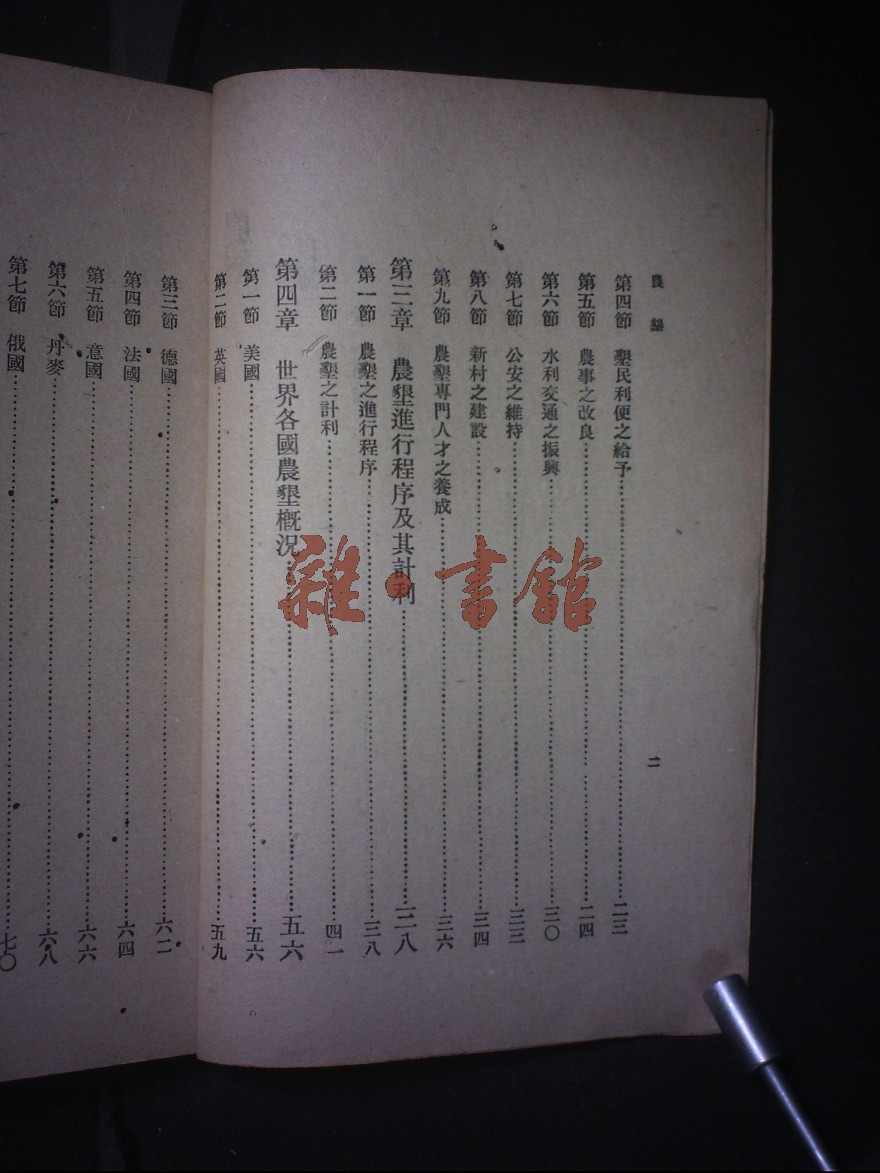 農墾
二
第四節 墾民利便之給予……二三
第五節 農事之改良……二四
第六節 水利交通之振興……三〇
第七節 公安之維持……三三
第八節 新村之建設……三四
第九節 農墾專門人才之養成……三六
第三章 農墾進行程序及其計利……三八
第一節 農墾之進行程序……三八
第二節 農墾之計利……四一
第四章 世界各國農墾概況……五六
第一節 美國……五六
第二節 英國……五九
第三節 德國……六二
第四節 法國……六四
第五節 意國……六六
第六節 丹麥……六八
第七節 俄國……七〇
雜·書館